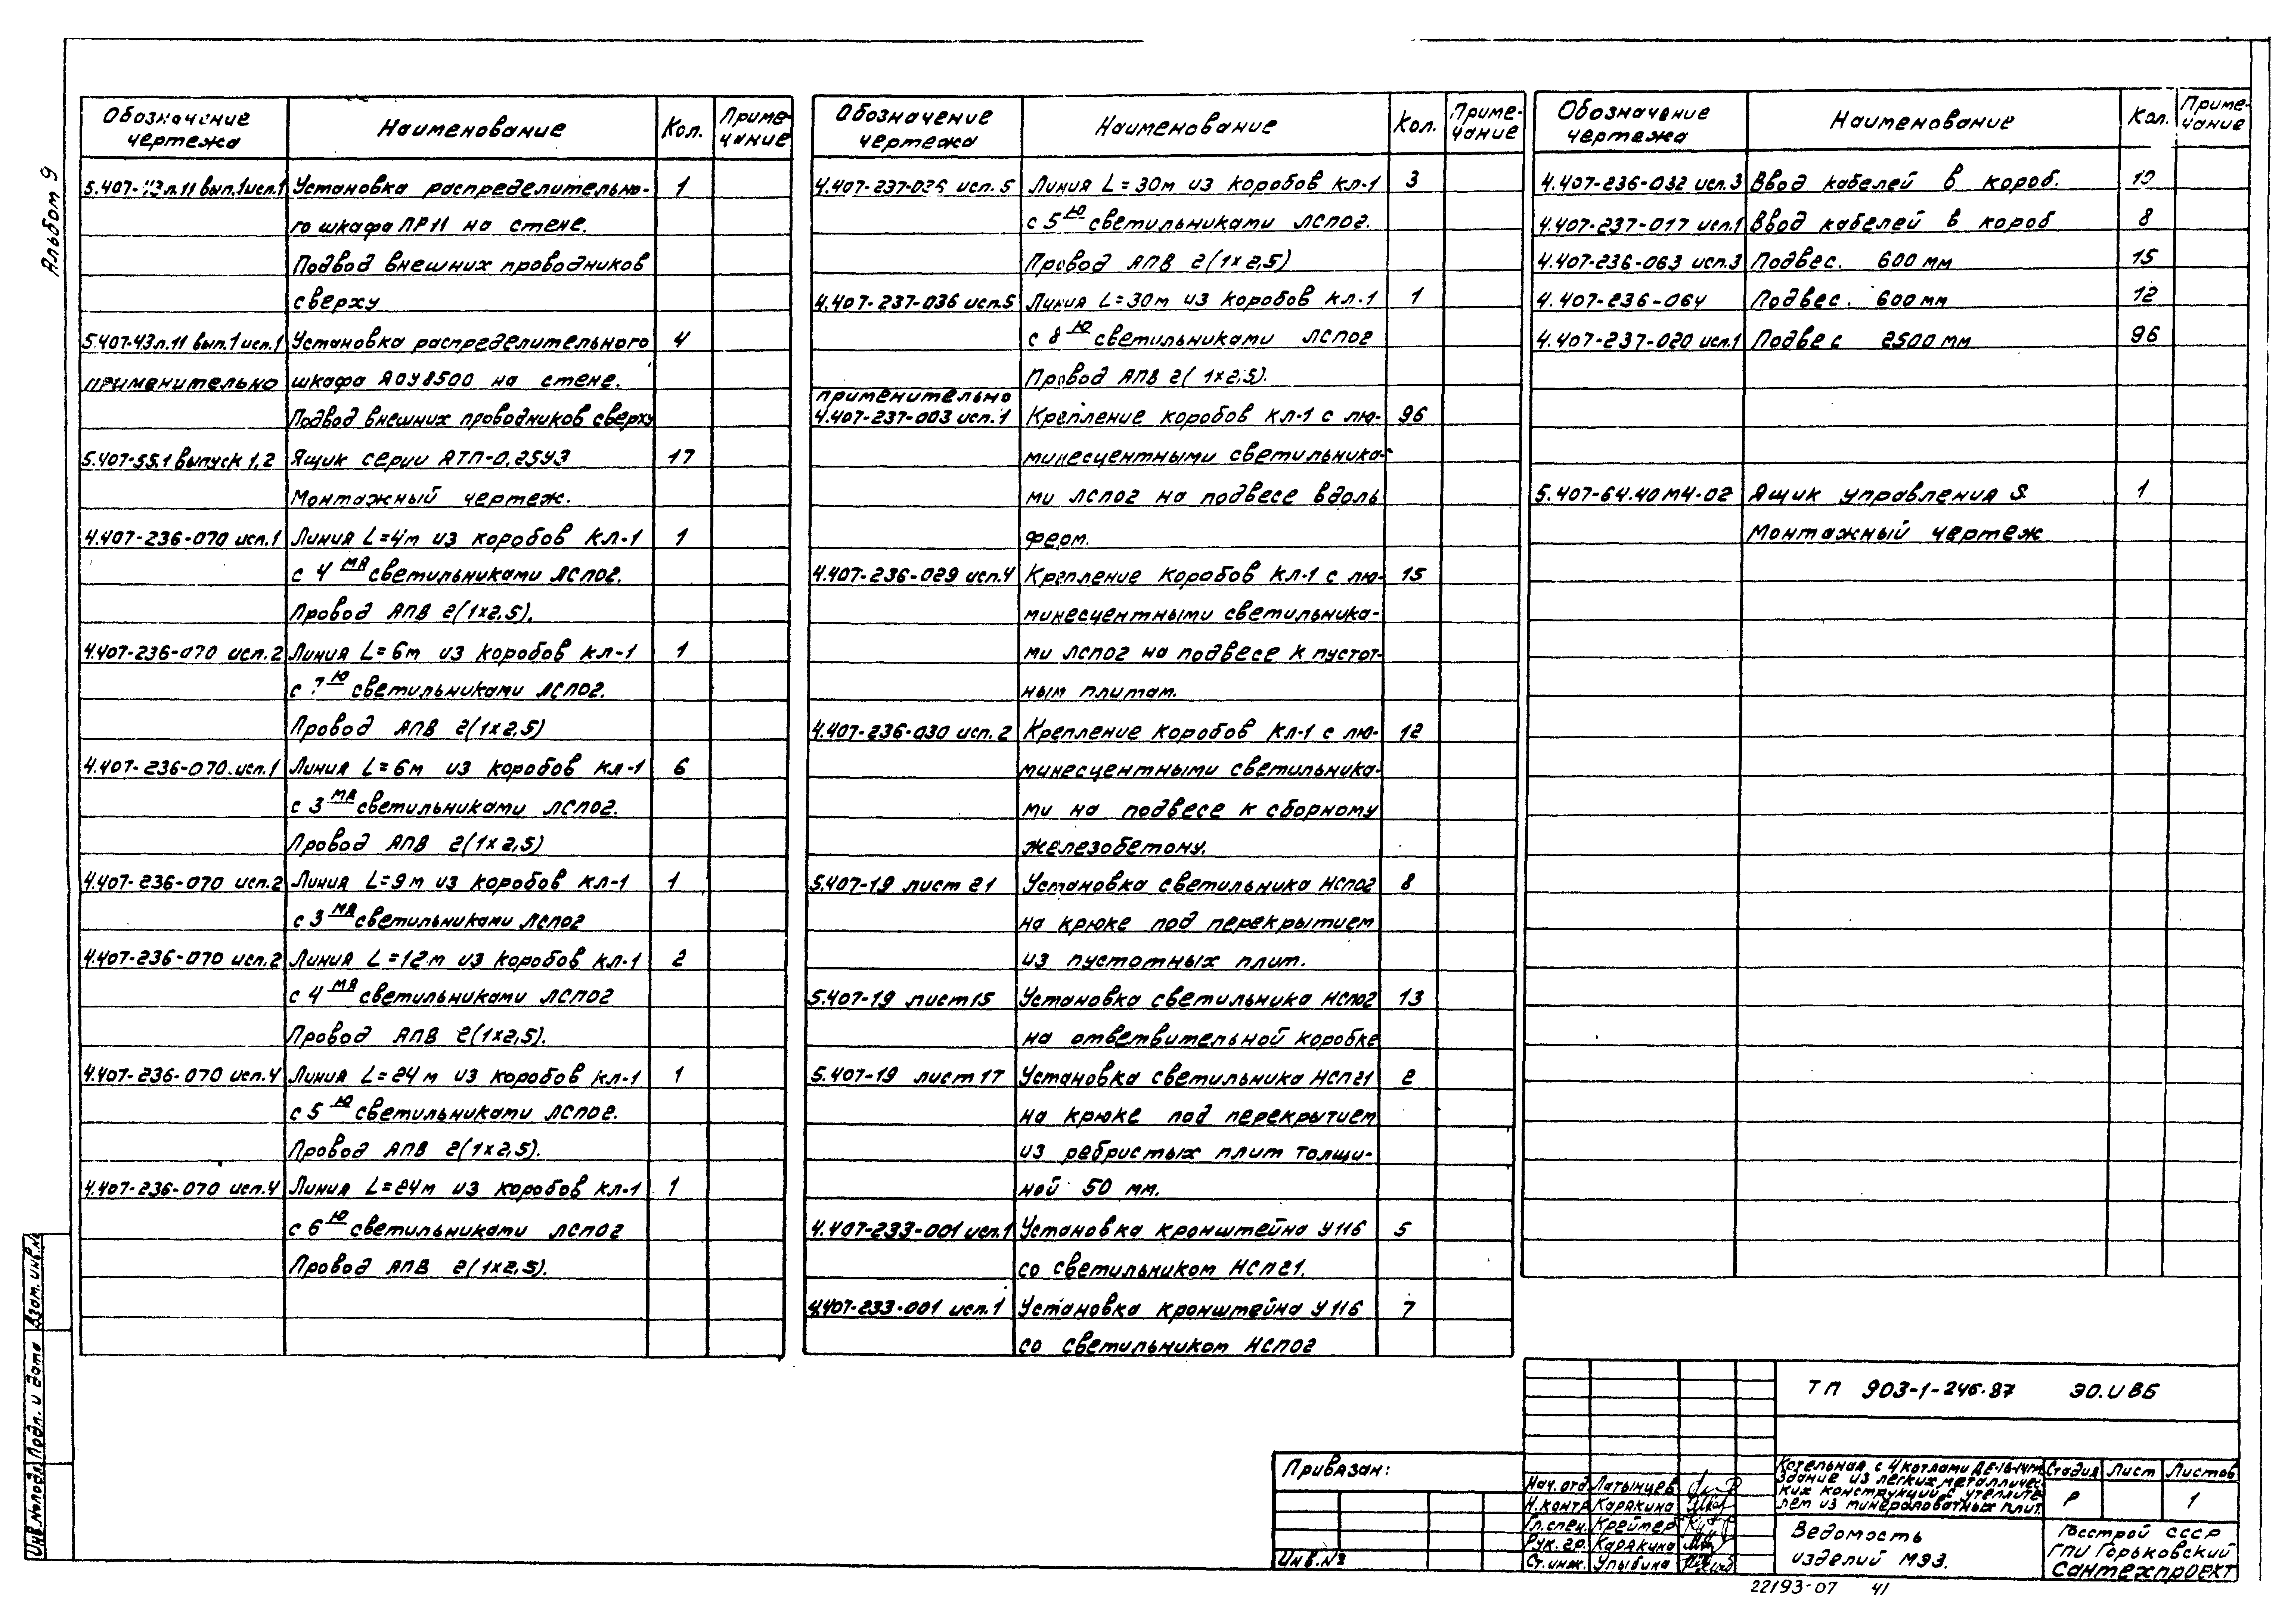 Альбом 9
Обозначение чертежа Наименование Кол. Приме-чание
Установка распределительно- 1
го шкафа ПР11 на стене.
Подвод внешних проводников
сверху
5.407-43л.11 вып.1 исп.1 Установка распределительного 4
применительно шкафа ЯОУ8500 на стене.
Подвод внешних проводников сверху
5.407-55.1 выпуск 1,2 Ящик серии ЯТП-0,25У3 17
Монтажный чертеж.
4.407-236-070 исп.1 Линия L=4м из коробов КЛ-1 1
с 4 МЯ светильниками ЛСП02.
Провод АПВ 2(1×2,5).
4.407-236-070 исп.2 Линия L=6м из коробов КЛ-1 1
с Ю светильниками ЛСП02.
Провод АПВ 2(1×2,5)
4.407-236-070 исп.1 Линия L=6м из коробов КЛ-1 6
с 3 МЯ светильниками ЛСП02.
Провод АПВ 2(1×2,5)
4.407-236-070 исп.2 Линия L=9м из коробов КЛ-1 1
с 3 МЯ светильниками ЛСП02
4.407-236-070 исп.2 Линия L=12м из коробов КЛ-1 2
с 4 МЯ светильниками ЛСП02
Провод АПВ 2(1×2,5).
4.407-236-070 исп.4 Линия L=24м из коробов КЛ-1 1
с 5 Ю светильниками ЛСП02.
Провод АПВ 2(1×2,5).
4.407-236-070 исп.4 Линия L=24м из коробов КЛ-1 1
с 6 Ю светильниками ЛСП02
Провод АПВ 2(1×2,5).
Обозначение чертежа Наименование Кол. Приме-чание
исп.5 Линия L=30м из коробов КЛ-1 3
с 5 Ю светильниками ЛСП02.
Провод АПВ 2(1×2,5)
4.407-237-036 исп.5 Линия L=30м из коробов КЛ-1 1
с 8 Ю светильниками ЛСП02
Провод АПВ 2(1×2,5).
применительно
4.407-237-003 исп.1 Крепление коробов КЛ-1 с лю- 96
минесцентными светильника-
ми ЛСП02 на подвесе вдоль
ферм.
4.407-236-029 исп.4 Крепление коробов КЛ-1 с лю- 15
минесцентными светильника-
ми ЛСП02 на подвесе к пустот-
ным плитам.
4.407-236-030 исп.2 Крепление коробов КЛ-1 с лю- 12
минесцентными светильника-
ми на подвесе к сборному
железобетону.
5.407-19 лист 21 Установка светильника НСП02 8
на крюке под перекрытием
из пустотных плит.
5.407-19 лист 15 Установка светильника НСП02 13
на ответвительной коробке
5.407-19 лист 17 Установка светильника НСП21 2
на крюке под перекрытием
из ребристых плит толщи-
ной 50 мм.
4.407-233-001 исп.1 Установка кронштейна У116 5
со светильником НСП21.
4.407-233-001 исп.1 Установка кронштейна У116 7
со светильником НСП02
Обозначение чертежа Наименование Кол. Приме-чание
4.407-236-032 исп.3 Ввод кабелей в короб. 10
4.407-237-017 исп.1 Ввод кабелей в короб 8
4.407-236-063 исп.3 Подвес. 600 мм 15
4.407-236-064 Подвес. 600 мм 12
4.407-237-020 исп.1 Подвес 2500 мм 96
5.407-64.40М4-02 Ящик управления Я. 1
Монтажный чертеж
ТП 903-1-246.87 ЭО.И ВБ
Котельная с 4 котлами ДЕ-16-14ГМ.
Здание из легких металличес-
ких конструкций с утеплите-
лем из минераловатных плит.
Стадия Лист Листов
Р 1
Ведомость
изделий МЭЗ.
Госстрой СССР
ГПИ Горьковский
Сантехпроект
Привязан:
Инв.№
Нач.отд. Латынцев
Н.контр. Карякина
Гл.спец. Креймер
Рук.гр. Карякина
Ст.инж. Улыбина
Инв.№подл. Подп. и дата Взам.инв.№
22193-07 41